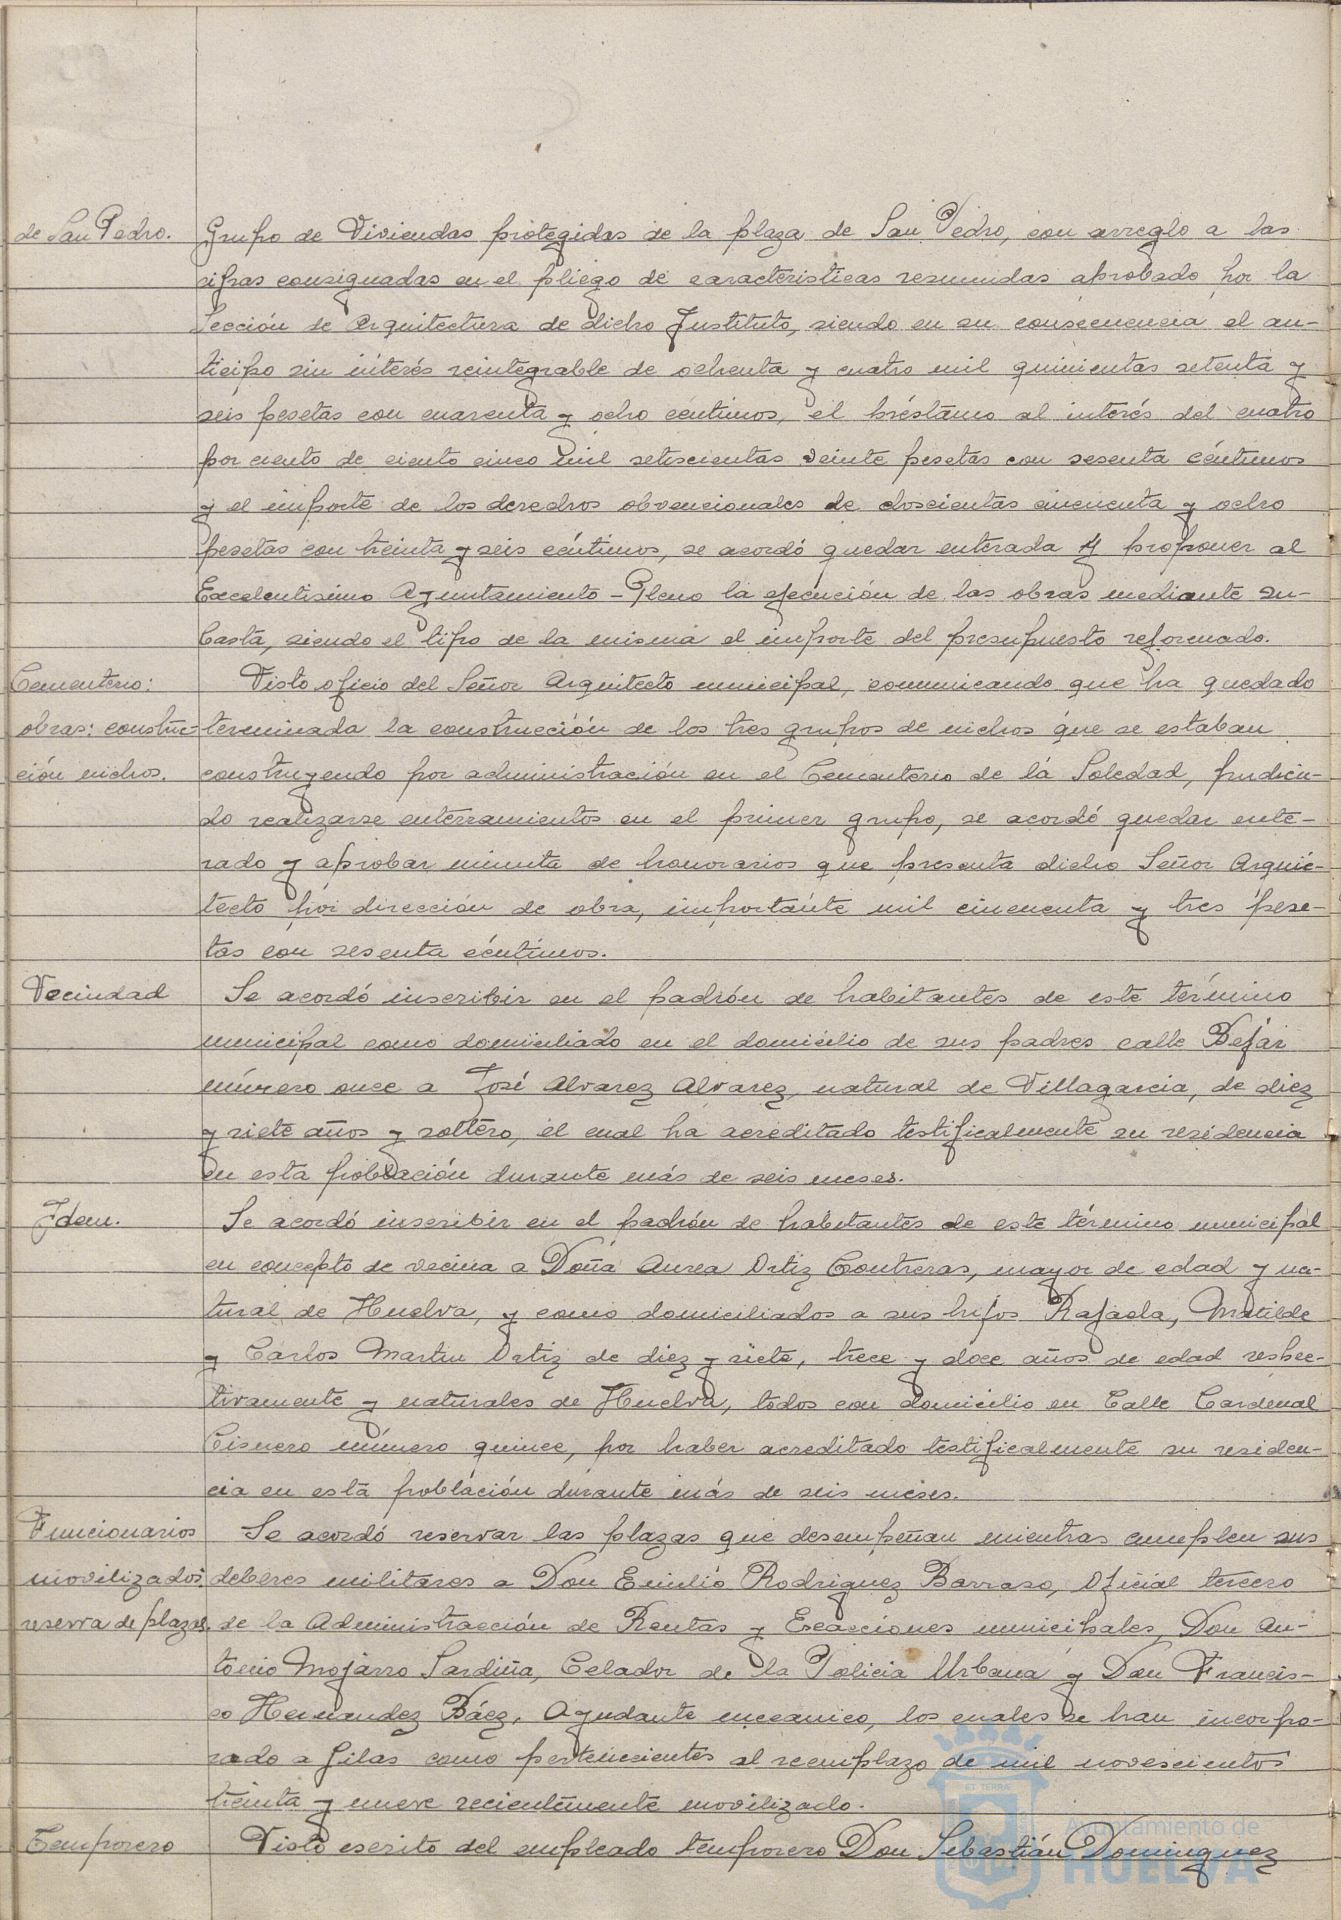 de San Pedro. Grupo de Viviendas protegidas de la plaza de San Pedro, con arreglo a las
cifras consignadas en el pliego de caracteristicas resumidas aprobado por la
Sección de Arquitectura de dicho Instituto, siendo en su consecuencia el an-
ticipo sin interés reintegrable de ochenta y cuatro mil quinientas setenta y
seis pesetas con cuarenta y ocho céntimos, el préstamo al interés del cuatro
por ciento de ciento cinco mil setiscientas veinte pesetas con sesenta céntimos
y el importe de los derechos obvencionales de doscientas cincuenta y ocho
pesetas con treinta y seis céntimos, se acordó quedar enterada y proponer al
Excelentisimo Ayuntamiento-Pleno la ejecución de las obras mediante su-
basta, siendo el tipo de la misma el importe del presupuesto reformado.
Cementerio: Visto oficio del Señor Arquitecto municipal, comunicando que ha quedado
obras: construc- terminada la construcción de los tres grupos de nichos que se estaban
ción nichos. construyendo por administración en el Cementerio de la Soledad, pudien-
do realizarse enterramientos en el primer grupo, se acordó quedar ente-
rado y aprobar minuta de honorarios que presenta dicho Señor Arqui-
tecto por dirección de obra, importante mil cincuenta y tres pese-
tas con sesenta céntimos.
Vecindad Se acordó inscribir en el padrón de habitantes de este término
municipal como domiciliado en el domicilio de sus padres calle Bejar
número once a José Alvarez Alvarez, natural de Villagarcia, de diez
y siete años y soltero, el cual ha acreditado testificalmente su residencia
en esta población durante más de seis meses.
Idem. Se acordó inscribir en el padrón de habitantes de este término municipal
en concepto de vecina a Doña Aurea Ortiz Contreras, mayor de edad y na-
tural de Huelva, y como domiciliados a sus hijos Rafaela, Matilde
y Carlos Martin Ortiz de diez y siete, trece y doce años de edad respec-
tivamente y naturales de Huelva, todos con domicilio en Calle Cardenal
Cisnero número quince, por haber acreditado testificalmente su residen-
cia en esta población durante más de seis meses.
Funcionarios Se acordó reservar las plazas que desempeñan mientras cumplen sus
movilizados: deberes militares a Don Emilio Rodriguez Barraso, Oficial tercero
reserva de plazas. de la Administracción de Rentas y Exacciones municipales, Don An-
tonio Mojarro Sardiña, Celador de la Policia Urbana y Don Francis-
co Hernandez Báez, Ayudante meceanico, los cuales se han incorpo-
rado a filas como pertenecientes al reemplazo de mil novescientos
treinta y nueve recientemente movilizado.
Temporero Visto escrito del empleado temporero Don Sebastián Dominguez
ET TERRÆ
Ayuntamiento de
HUELVA